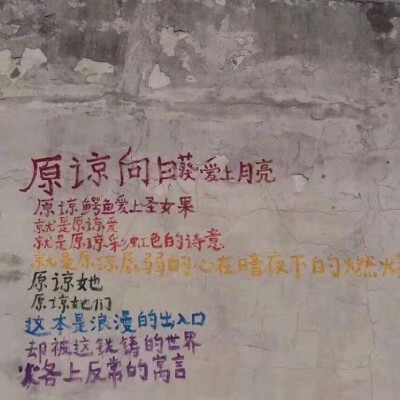 原谅向日葵爱上月亮
原谅鳄鱼爱上圣女果
就是原谅爱
就是原谅彩虹色的诗意
就是原谅孱弱的心在暗夜下的燃烧
原谅她
原谅她们
这本是浪漫的出入口
却被这铁铸的世界
烙上反常的寓言